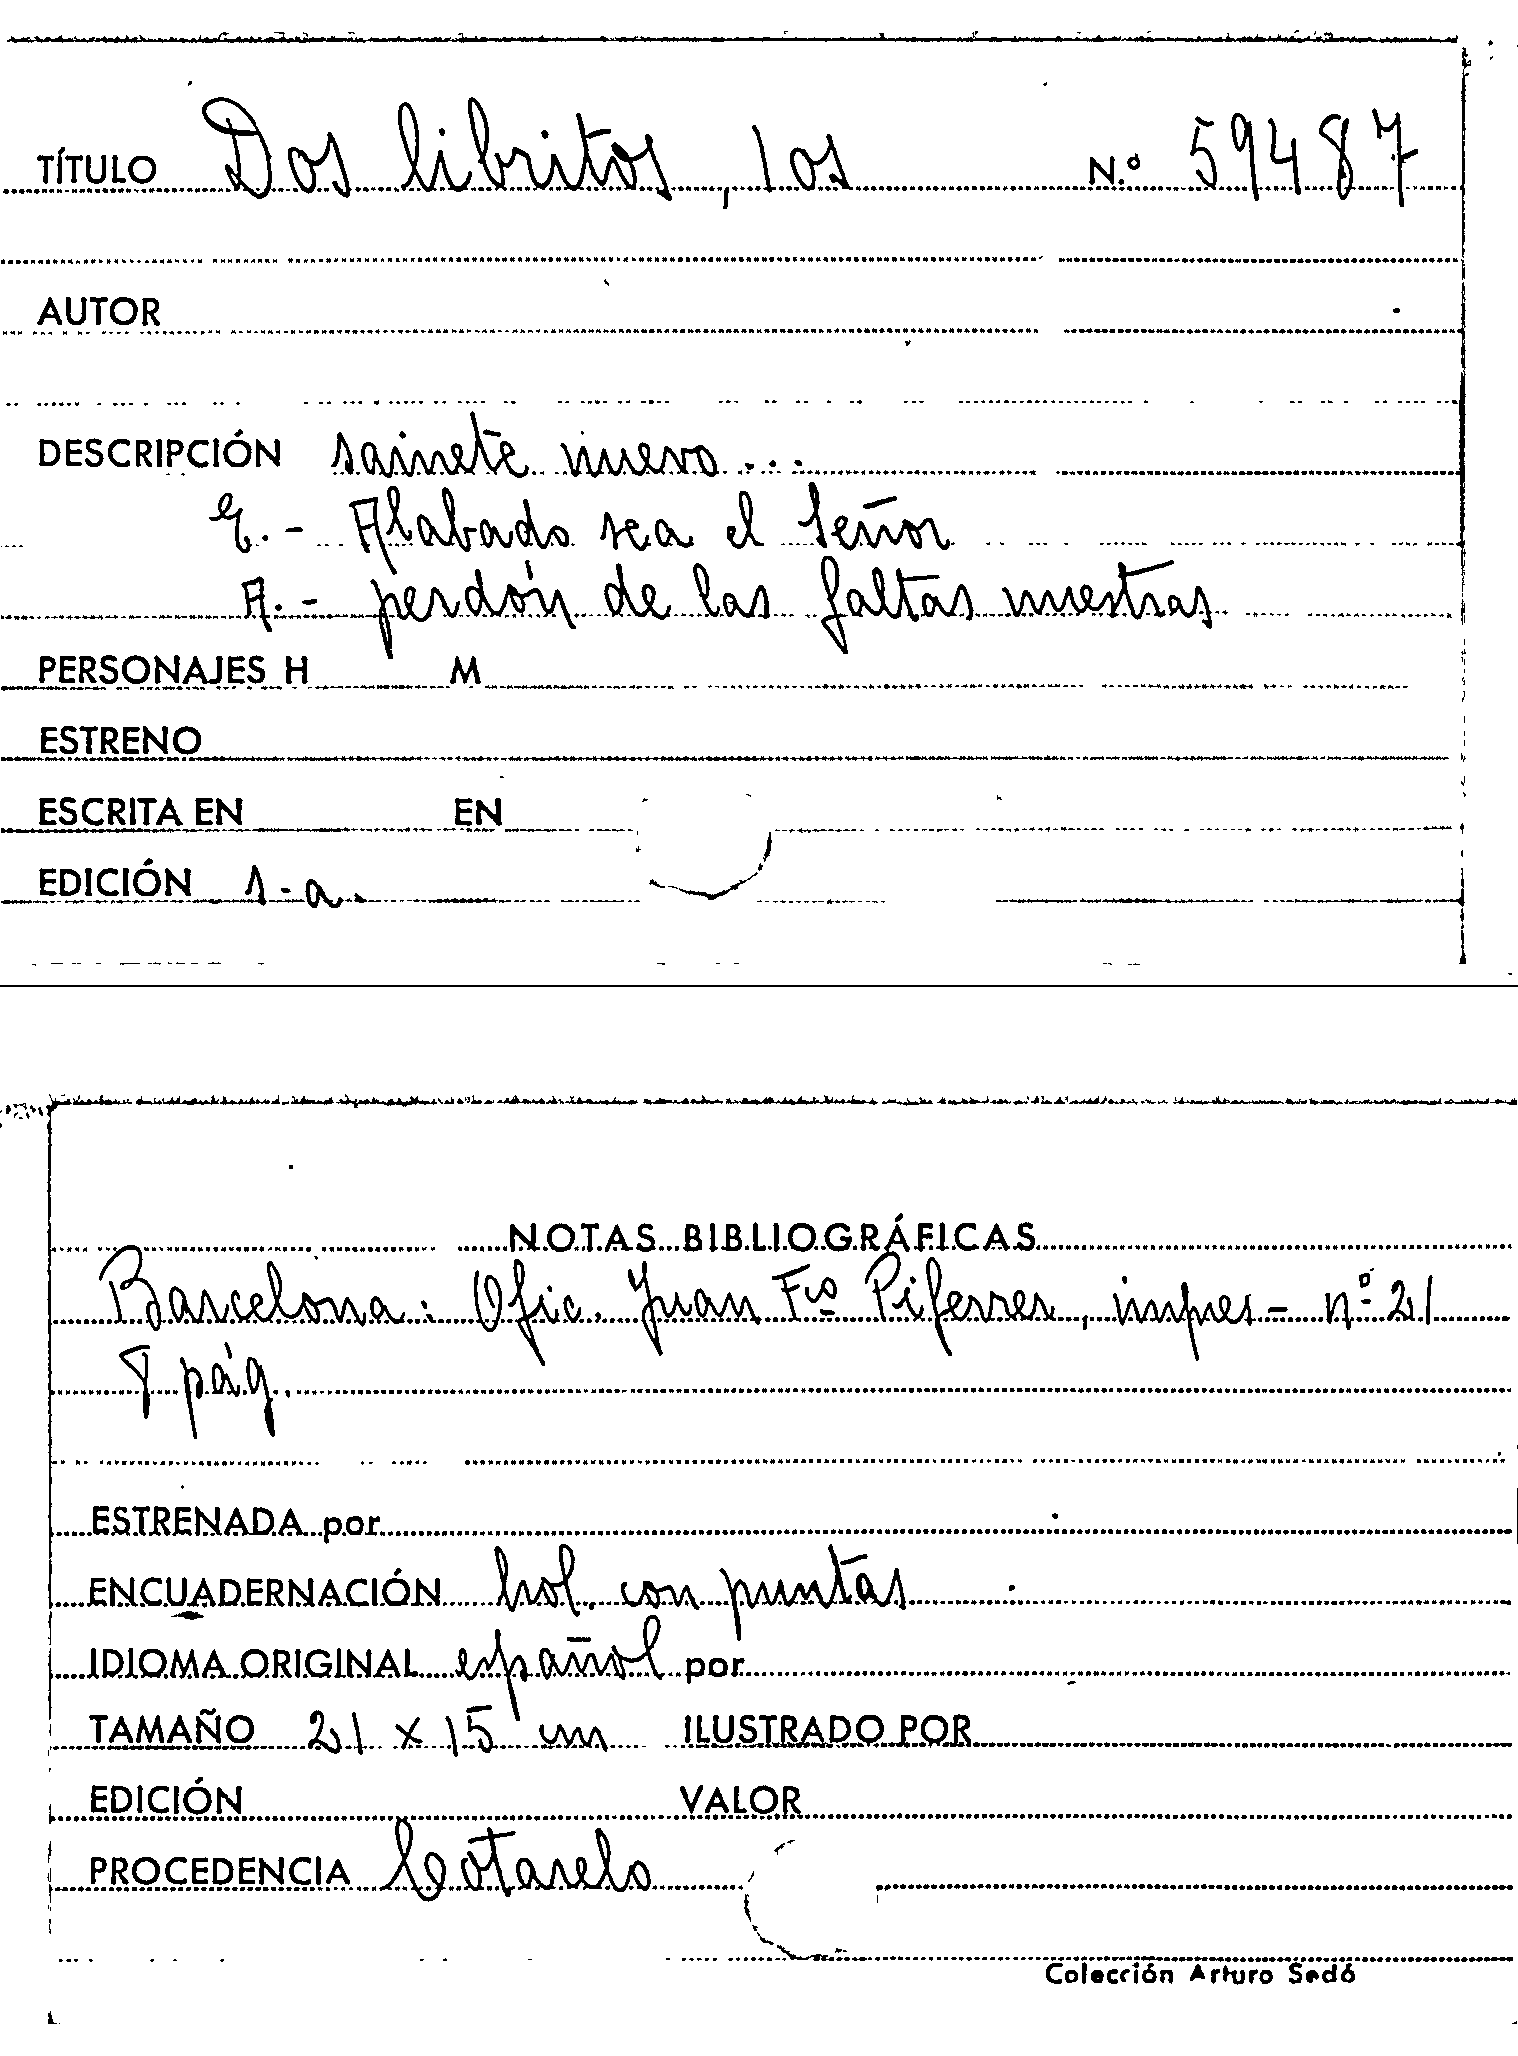 TÍTULO Dos libritos, los N.º 59487
AUTOR
DESCRIPCIÓN sainete nuevo...
E.- Alabado sea el Señor
A.- perdón de las faltas nuestras
PERSONAJES H M
ESTRENO
ESCRITA EN EN
EDICIÓN s-a.
NOTAS BIBLIOGRÁFICAS
Barcelona: Ofic. Juan Fco Piferrer, impres- nº 21
8 pág.
ESTRENADA por
ENCUADERNACIÓN hol. con puntas
IDIOMA ORIGINAL español por
TAMAÑO 21 x 15 cm ILUSTRADO POR
EDICIÓN VALOR
PROCEDENCIA Cotarelo
Colección Arturo Sedó